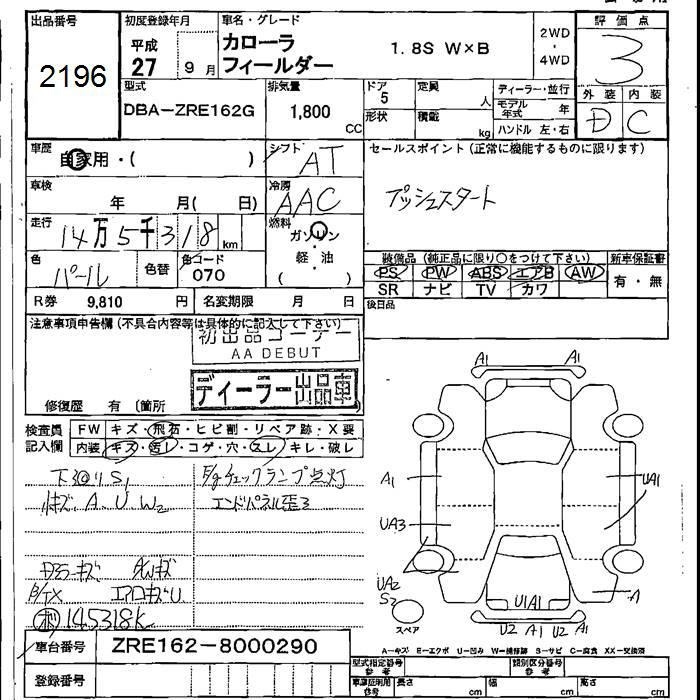 出品番号 初度登録年月 車名・グレード 評価点
2196 平成 27 9月 カローラ フィールダー 1.8S W×B 2WD ・ 4WD 3
型式 排気量 ドア 定員 ディーラー・並行 外装 内装
DBA-ZRE162G 1,800 CC 5 人 モデル年式 年 D C
形状 積載 kg ハンドル 左・右
車歴 自家用・( ) シフト AT セールスポイント(正常に機能するものに限ります)
車検 年 月( 日) 冷房 AAC プッシュスタート
走行 14万5千318km 燃料 ガソリン 軽・油 ( )
装備品(純正品に限り○をつけて下さい) 新車保証書
色 パール 色替 色コード 070 PS PW ABS エアB AW 有・無
SR ナビ TV カワ
R券 9,810 円 名変期限 月 日 後日品
注意事項申告欄(不具合内容等は具体的に記入して下さい)
初出品コーナー
AA DEBUT
ディーラー出品車
修復歴 有 (箇所
検査員記入欄 FW キズ・飛石・ヒビ割・リペア跡・X要
内装 キズ・汚し・コゲ・穴・スレ・キレ・破レ
S1 チェックランプ点灯
キズ、A、U、W2 エンドパネル歪ミ
キズ AWキズ
キズU
145318k
A1 A1
A1 UA1
UA3
UA2
S2 U1A1 A
スペア U2 A1 U2 A1
A-キズ E-エクボ U-凹み W-補修跡 S-サビ C-腐食 XX-交換済
車台番号 ZRE162-8000290
登録番号
型式指定番号 参考 類別区分番号 参考
車庫証明用 参考 長さ cm 幅 cm 高さ cm